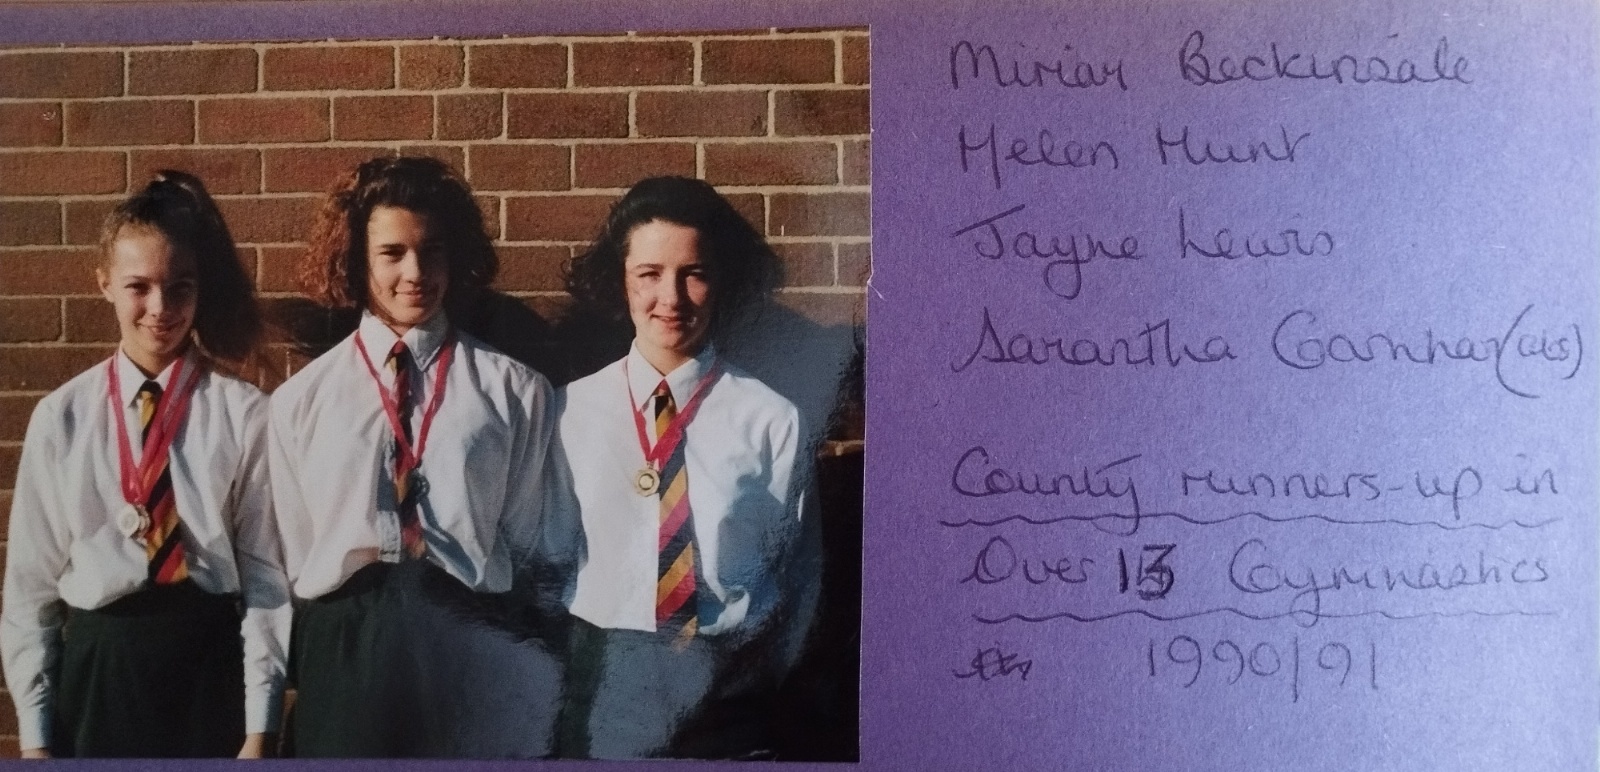 Miriam Beckinsale
Helen Hunt
Jayne Lewis
Samantha Garnham (abs)
County runners-up in
Over 13 Gymnastics
1990/91